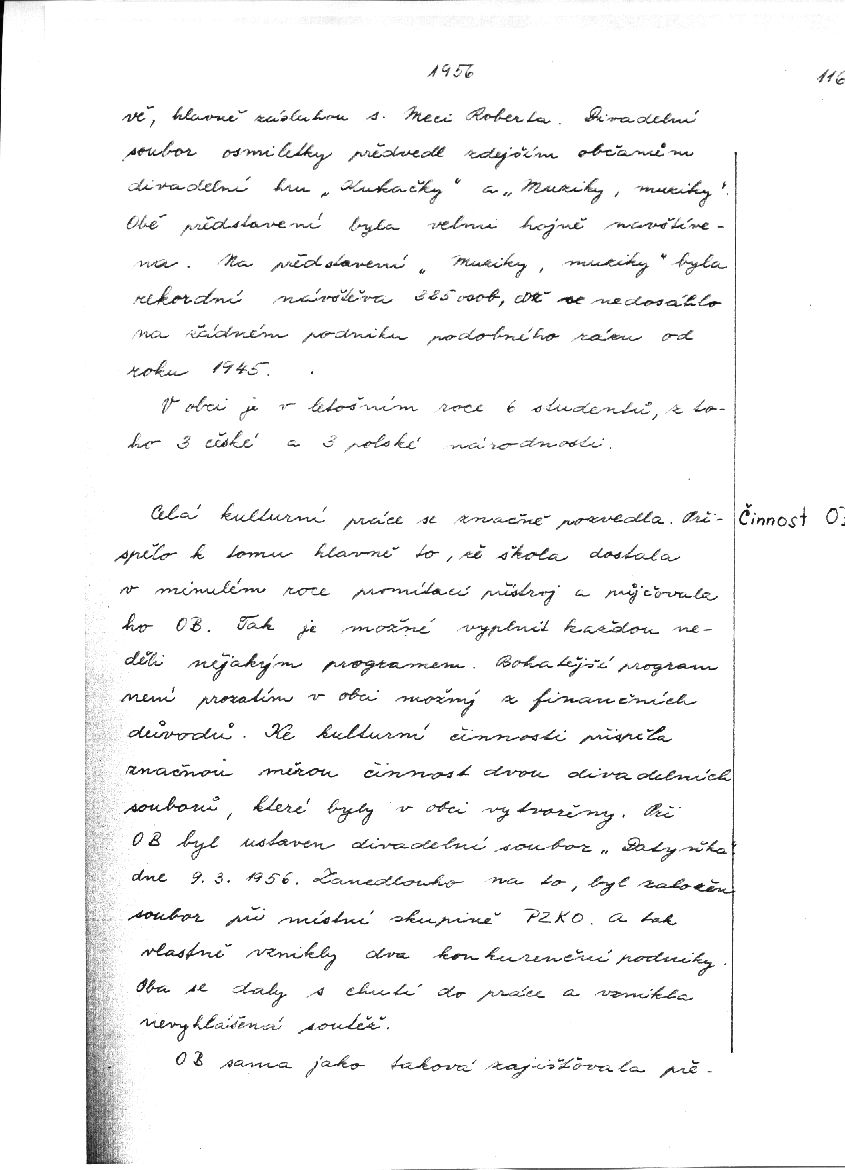 1956
116
vě, hlavně zásluhou s. Meci Roberta. Divadelní
soubor osmiletky předvedl zdejším občaném
divadelní hru „Kukačky" a „Muziky, muziky".
Obě představení byla velmi hojně navštíve-
na. Na představení „Muziky, muziky" byla
rekordní návštěva 225 osob, což se nedosáhlo
na žádném podniku podobného rázu od
roku 1945.
V obci je v letošním roce 6 studentů, z to-
ho 3 české a 3 polské národnosti.
Celá kulturní práce se značně pozvedla. Při-
Činnost O
spělo k tomu hlavně to, že škola dostala
v minulém roce promítací přístroj a půjčovala
ho OB. Tak je možné vyplnit každou ne-
děli nějakým programem. Bohatější program
není prozatím v obci možný z finančních
důvodů. Ke kulturní činnosti přispěla
značnou měrou činnost dvou divadelních
souborů, které byly v obci vytvořeny. Při
OB byl ustaven divadelní soubor „Datyňka"
dne 9.3. 1956. Zanedlouho na to, byl založen
soubor při místní skupině PZKO. a tak
vlastně vznikly dva konkurenční podniky.
Oba se daly s chutí do práce a vznikla
nevyhlášená soutěž.
OB sama jako taková zajišťovala pře-